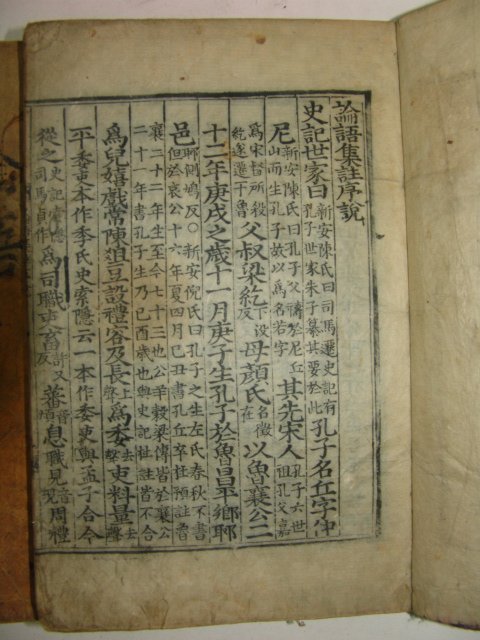 論語集註序說
史記世家曰新安陳氏曰司馬遷史記有孔子世家朱子纂其要於此孔子名丘字仲
尼新安陳氏曰孔子父禱於尼丘山而生孔子故以爲名若字其先宋人孔子六世祖孔父嘉
爲宋督所殺遂遷于魯父叔梁紇下沒反母顏氏名徵在以魯襄公二
十二年庚戌之歲十一月庚子生孔子於魯昌平鄕陬
邑側鳩反○新安倪氏曰孔子之生左氏春秋不書但於哀公十六年夏四月己丑書孔丘卒杜預註魯
襄二十二年生至今七十三也公羊穀梁傳皆於襄公二十一年書孔子生乃己酉歲也與史記杜註皆不合
爲兒嬉戲常陳俎豆設禮容及長上聲爲委去聲吏料量去聲
平委吏本作季氏史索隱云一本作委吏與孟子合今
從之史記索隱司馬貞作爲司職吏畜許又反蕃音煩息職見音現周禮